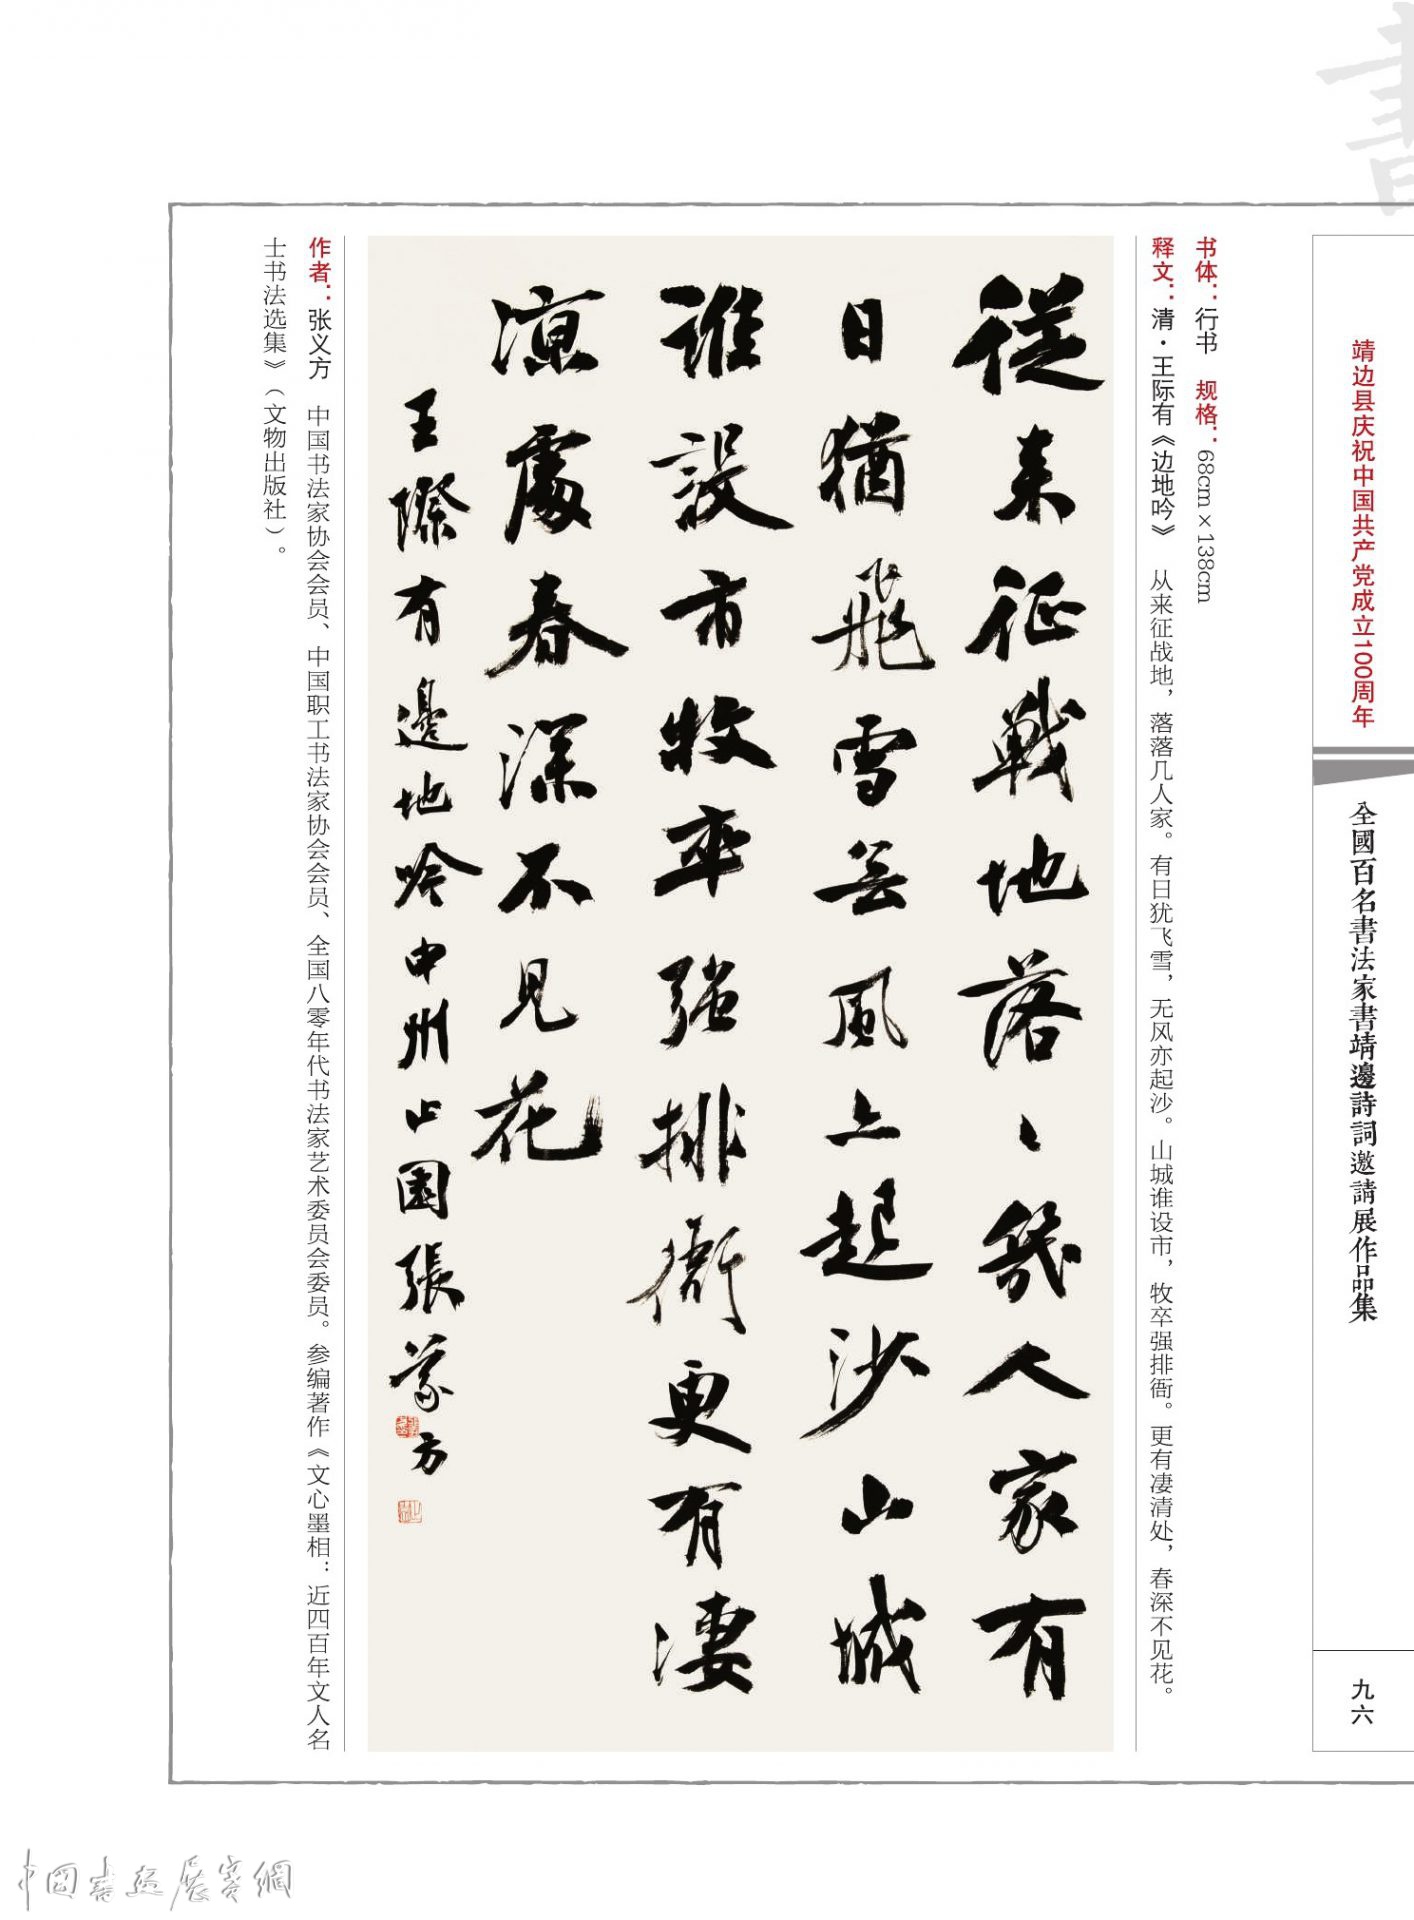 書
靖边县庆祝中国共产党成立100周年
全國百名書法家書靖邊詩詞邀請展作品集
九六
书体：行书　规格：68cm×138cm
释文：清·王际有《边地吟》　从来征战地，落落几人家。有日犹飞雪，无风亦起沙。山城谁设市，牧卒强排衙。更有凄清处，春深不见花。
從来征戰地落〻幾人家有
日猶飛雪無風亦起沙山城
誰設市牧卒强排衙更有淒
凉處春深不見花
王際有邊地吟申州止園張義方
作者：张义方　中国书法家协会会员、中国职工书法家协会会员、全国八零年代书法家艺术委员会委员。参编著作《文心墨相：近四百年文人名
士书法选集》（文物出版社）。
中國書画展賽網